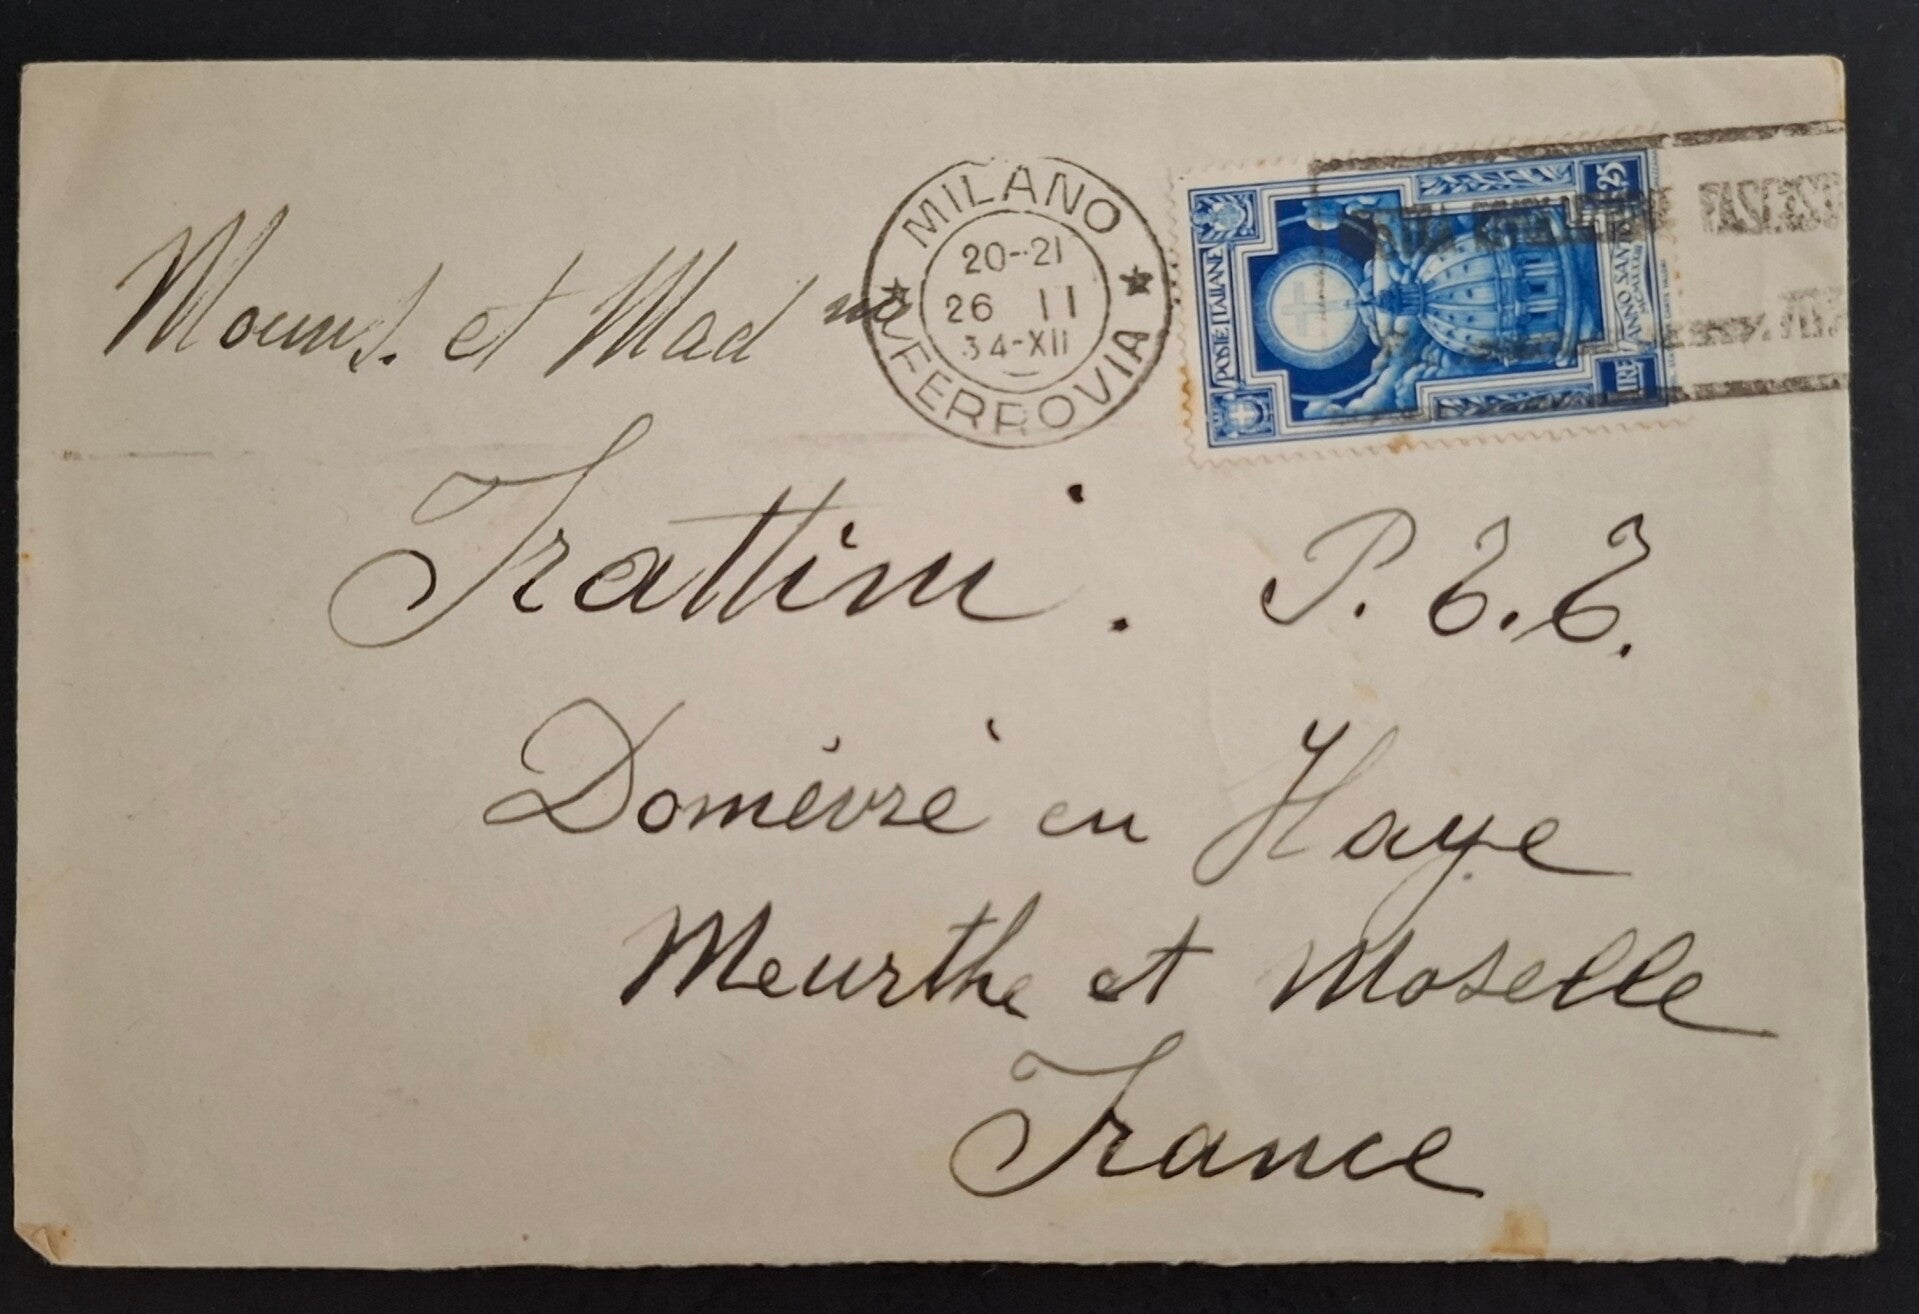 MILANO
20-21
26 II
34-XII
FERROVIA
POSTE ITALIANE
LIRE 1,25
ANNO SANTO
Mouns. et Madm
Frattini. P.T.T.
Domèvrè en Haye
Meurthe et Moselle
France